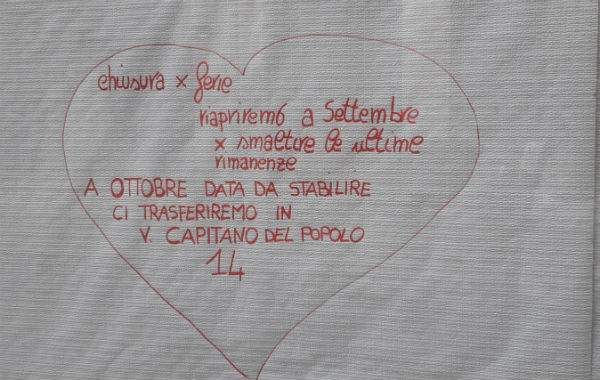 chiusura x ferie
riapriremo a Settembre
x smaltire le ultime
rimanenze
A OTTOBRE DATA DA STABILIRE
CI TRASFERIREMO IN
V. CAPITANO DEL POPOLO
14